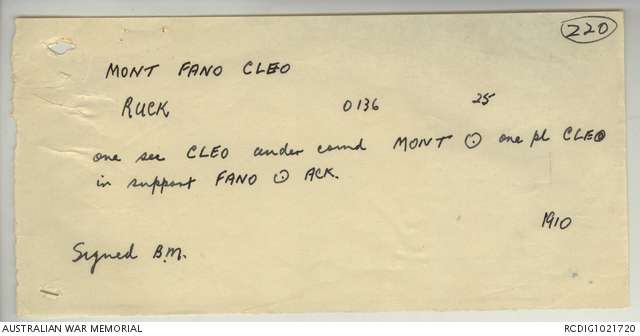 220
MONT FANO CLEO
RUCK 0136 25
one sec CLEO under comd MONT ⊙ one pl CLEO
in support FANO ⊙ ACK.
1910
Signed B.M.
AUSTRALIAN WAR MEMORIAL RCDIG1021720